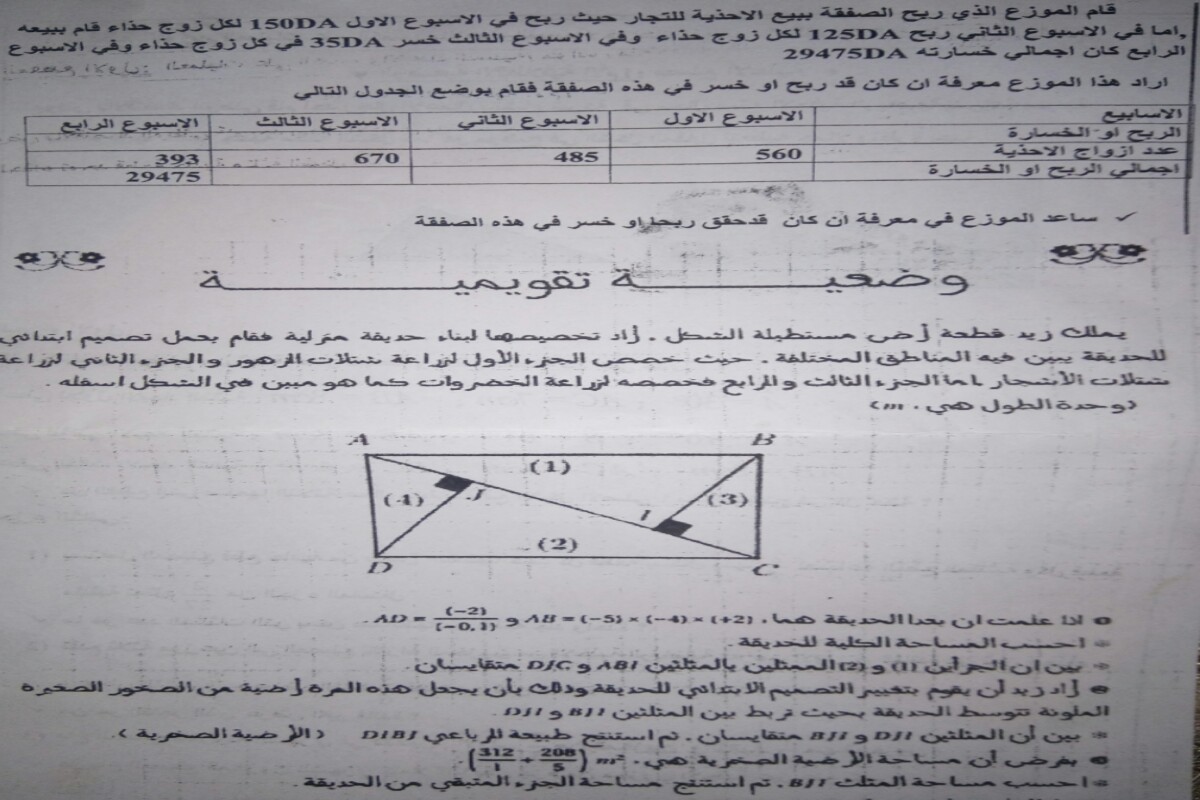 قام الموزع الذي ربح الصفقة ببيع الاحذية للتجار حيث ربح في الاسبوع الاول 150DA لكل زوج حذاء قام ببيعه
,اما في الاسبوع الثاني ربح 125DA لكل زوج حذاء وفي الاسبوع الثالث خسر 35DA في كل زوج حذاء وفي الاسبوع
الرابع كان اجمالي خسارته 29475DA
اراد هذا الموزع معرفة ان كان قد ربح او خسر في هذه الصفقة فقام بوضع الجدول التالي
الاسابيع الاسبوع الاول الاسبوع الثاني الاسبوع الثالث الاسبوع الرابع
الربح او الخسارة
عدد ازواج الاحذية 560 485 670 393
اجمالي الربح او الخسارة 29475
✓ ساعد الموزع في معرفة ان كان قدحقق ربحا او خسر في هذه الصفقة
وضعيـــــة تقويميـــــة
يملك زيد قطعة أرض مستطيلة الشكل . أراد تخصيصها لبناء حديقة منزلية فقام بحمل تصميم ابتدائي
للحديقة يبين فيه المناطق المختلفة . حيث خصص الجزء الأول لزراعة شتلات الزهور و الجزء الثاني لزراعة
شتلات الأشجار اما الجزء الثالث والرابع فخصصه لزراعة الخضروات كما هو مبين في الشكل اسفله .
(وحدة الطول هي . m)
A B
(1)
(4) J (3)
I
(2)
D C
اذا علمت ان بعدا الحديقة هما . AB = (−5) × (−4) × (+2) و AD = (−2)/(−0,1) .
احسب المساحة الكلية للحديقة .
بين ان الجزأين (1) و (2) الممثلين بالمثلثين ABI و DJC متقايسان .
أراد زيد أن يقوم بتغيير التصميم الابتدائي للحديقة وذلك بأن يجعل هذه المرة أرضية من الصخور الصغيرة
الملونة تتوسط الحديقة بحيث تربط بين المثلثين BIJ و DJI .
بين أن المثلثين DJI و BIJ متقايسان . ثم استنتج طبيعة الرباعي DIBJ (الأرضية الصخرية ) .
بفرض أن مساحة الأرضية الصخرية هي . (312/1 + 208/5) m² .
احسب مساحة المثلث BIJ . ثم استنتج مساحة الجزء المتبقي من الحديقة .